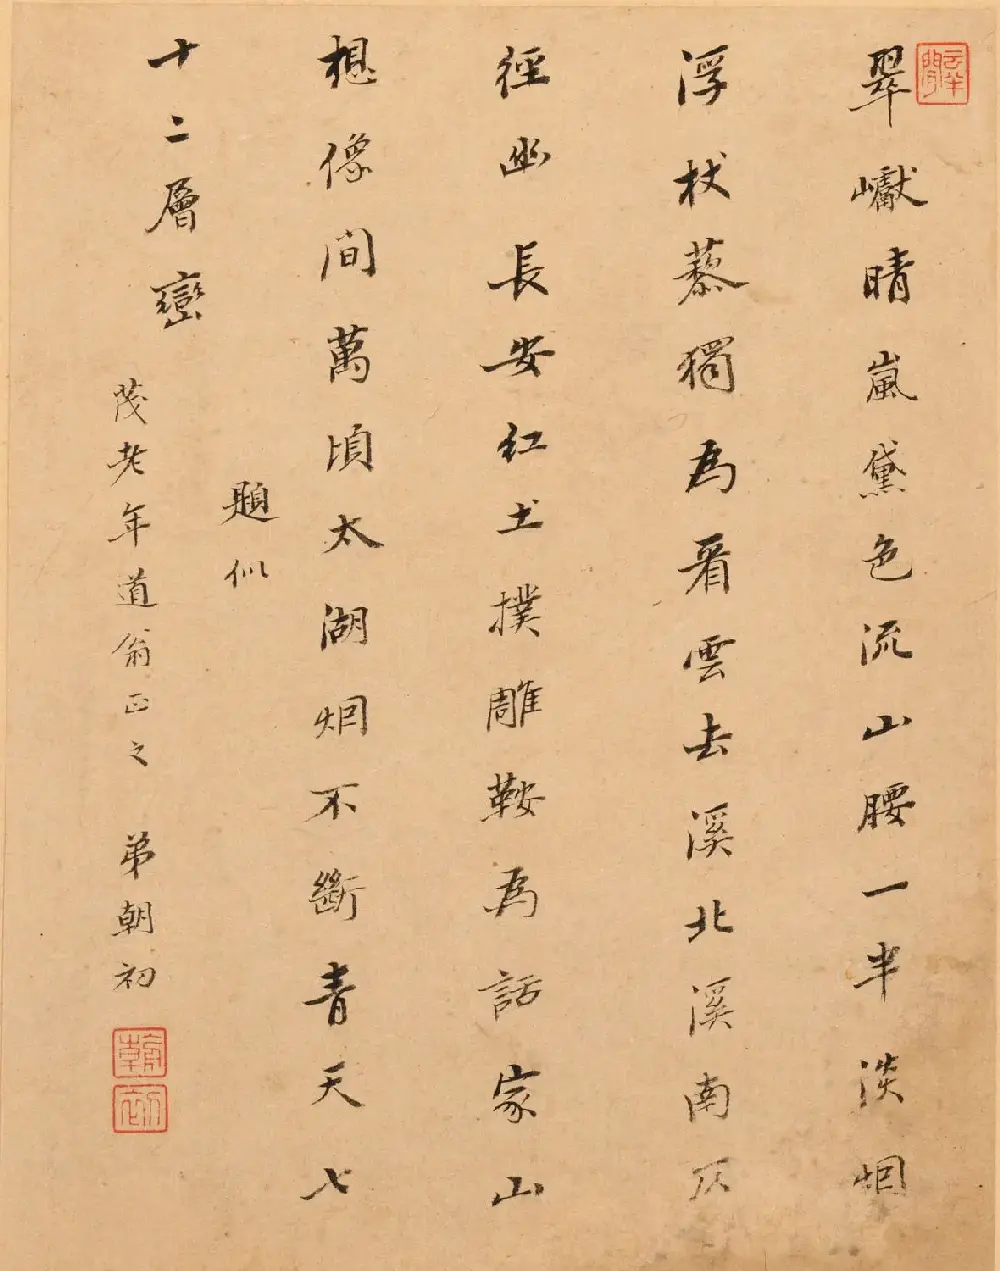 翠巘晴嵐黛色流山腰一半淡烟
浮杖藜獨為看雲去溪北溪南仄
徑幽長安紅土撲雕鞍為話家山
想像間萬頃太湖烟不斷青天七
十二層巒
題似
茂老年道翁正之 弟朝初
朝初